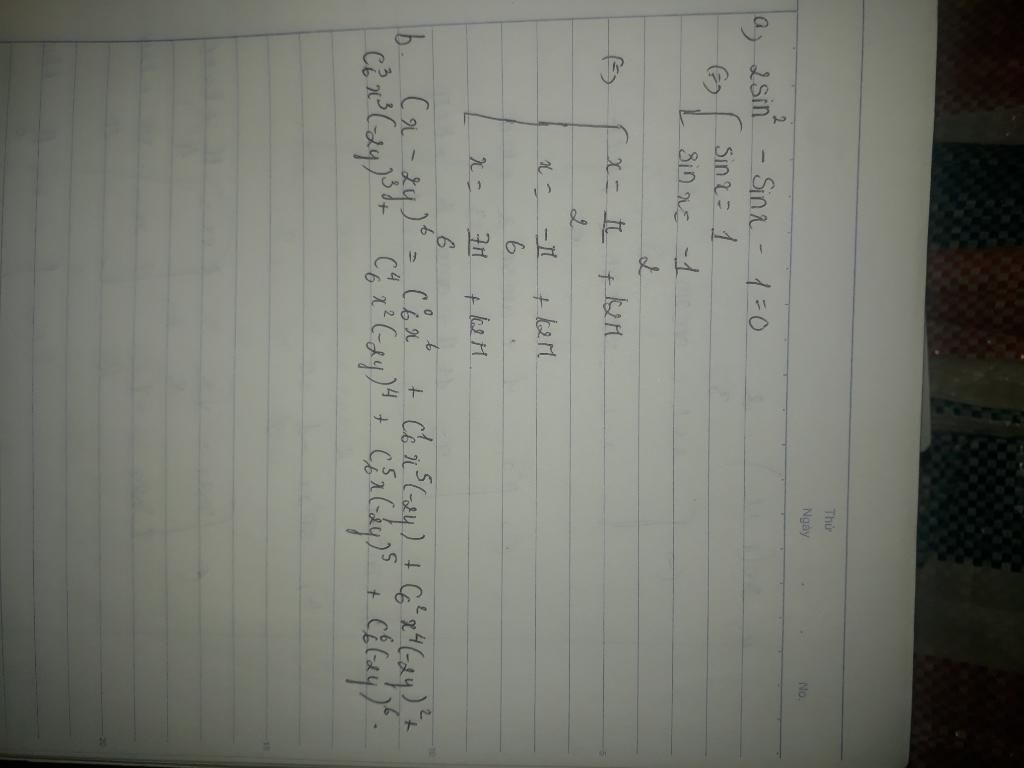 Thứ
Ngày . . No.
a) 2sin² - sinx - 1 = 0
(=) [ sinx = 1
sinx = -1/2
(=) [ x = π/2 + k2π
x = -π/6 + k2π
x = 7π/6 + k2π
b. (x - 2y)⁶ = C₆⁰x⁶ + C₆¹x⁵(-2y) + C₆²x⁴(-2y)² +
C₆³x³(-2y)³ + C₆⁴x²(-2y)⁴ + C₆⁵x(-2y)⁵ + C₆⁶(-2y)⁶.
5
10
15
20